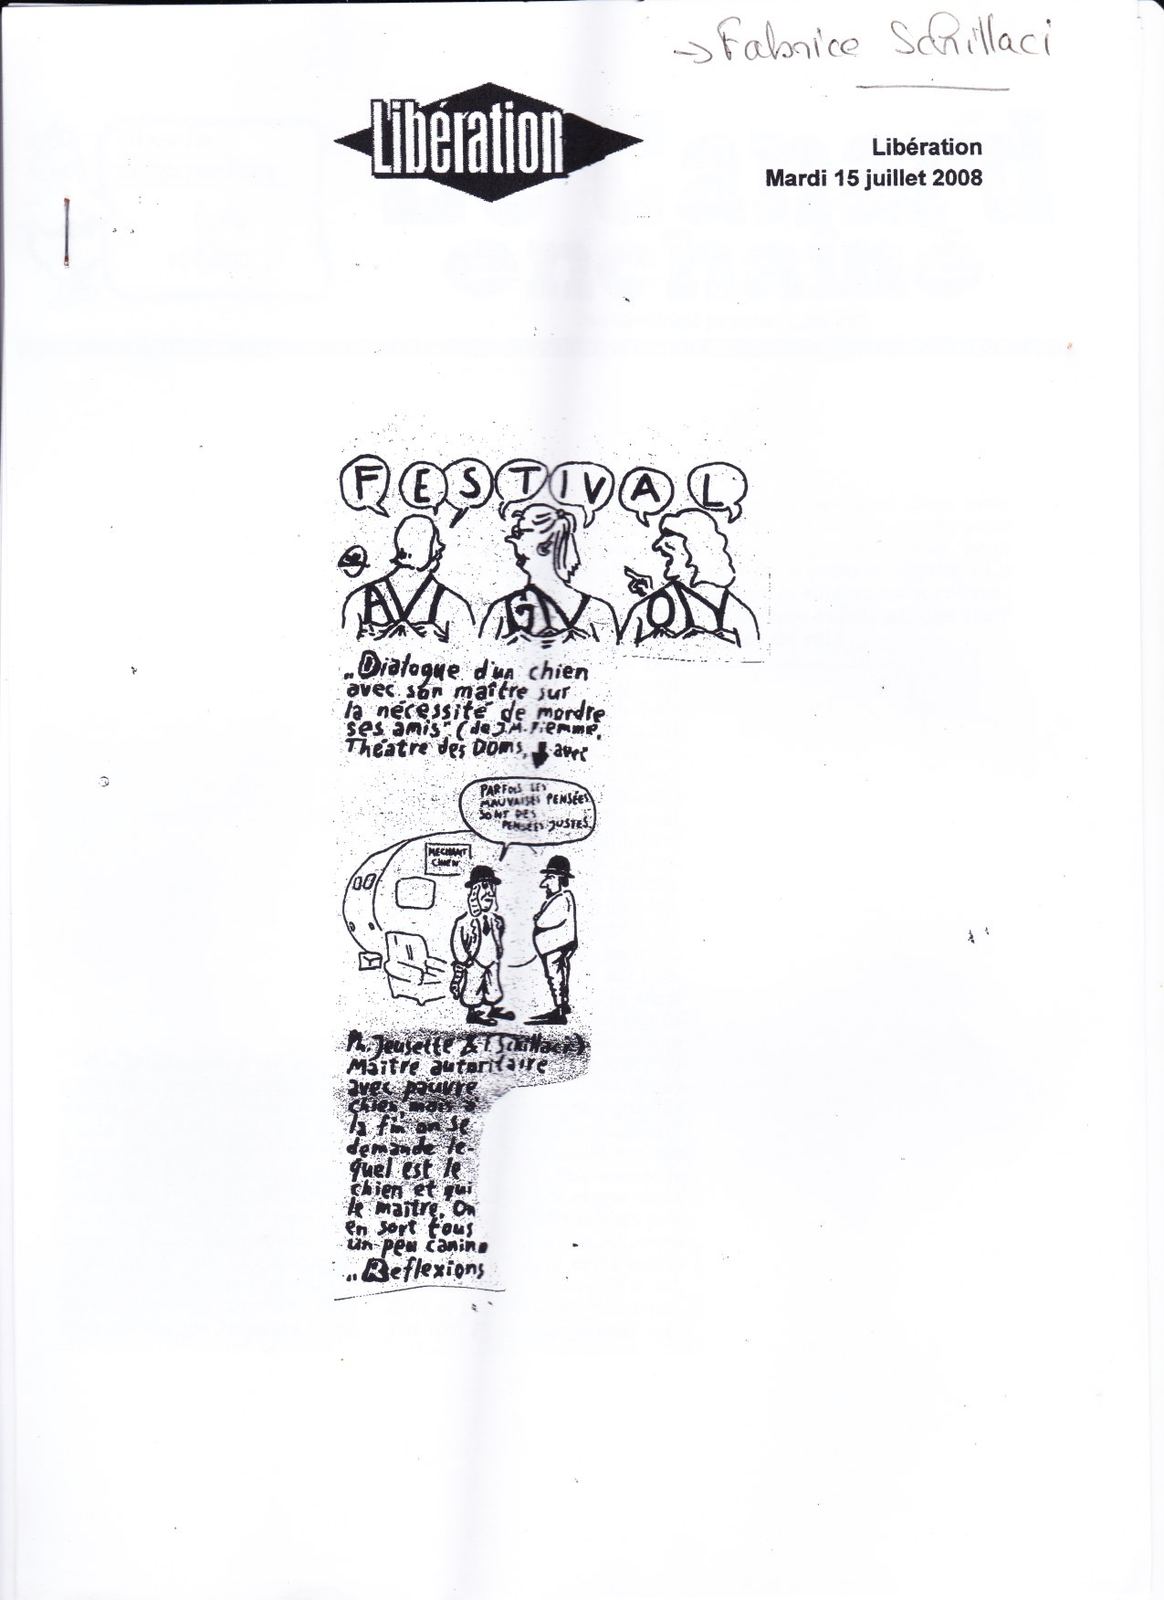 → Fabrice Schillaci
Libération
Libération
Mardi 15 juillet 2008
FESTIVAL
AVGNO
„Dialogue d'un chien
avec son maître sur
la nécessité de mordre
ses amis" (de J.M. Piemme,
Théatre des Doms, avec
PARFOIS LES
MAUVAISES PENSÉES
SONT DES
PENSÉES JUSTES.
MECHANT
CHIEN
Ph. Jeusette & F. Schillaci)
Maître autoritaire
avec pauvre
chien, mais à
la fin on se
demande le-
quel est le
chien et qui
le maître. On
en sort tous
un peu canins
„Reflexions